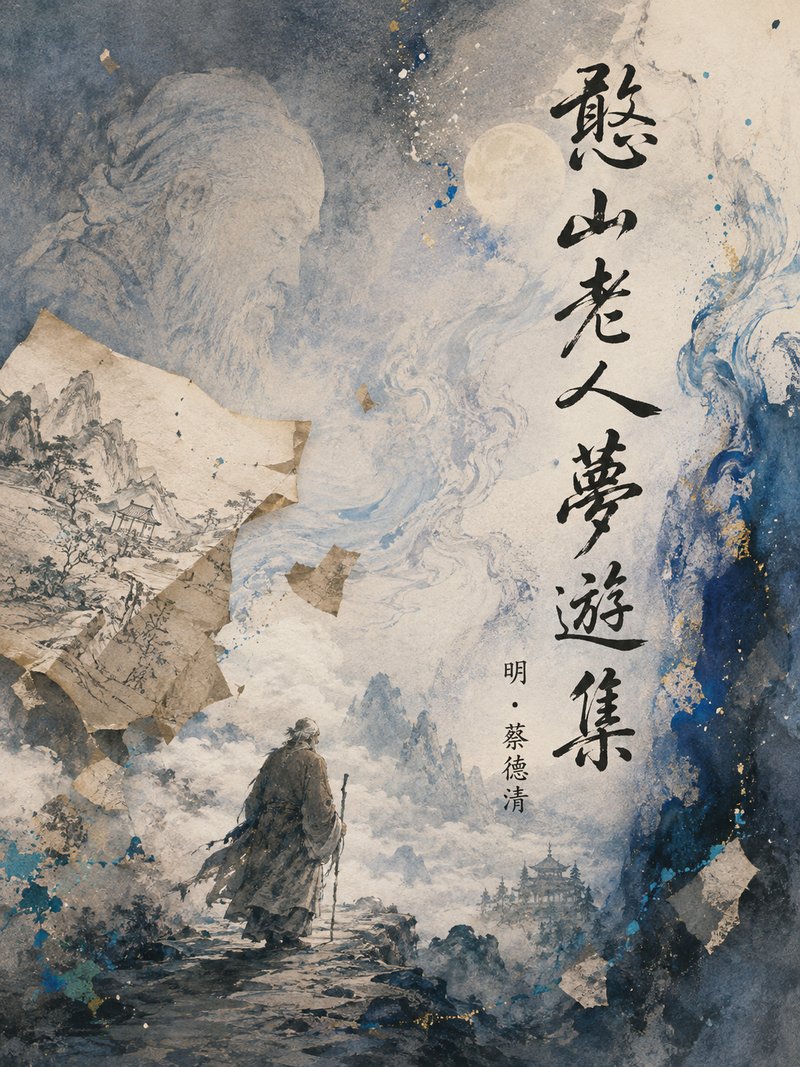 憨山老人夢遊集
明・蔡德清